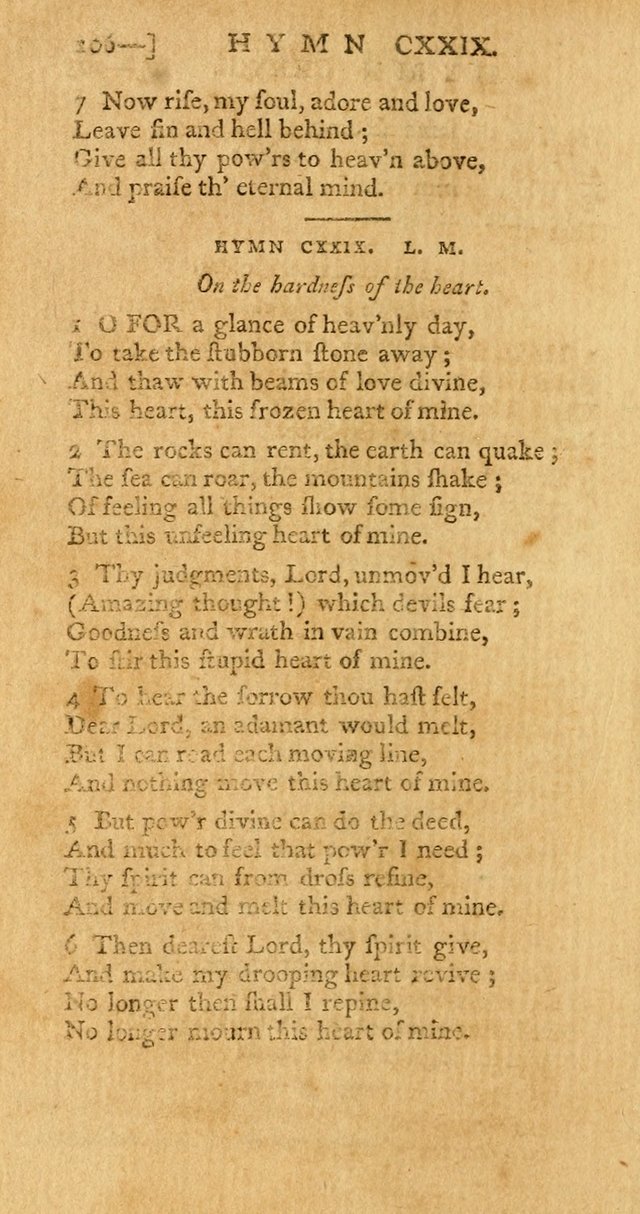 106—] HYMN CXXIX.
7 Now riſe, my ſoul, adore and love,
Leave ſin and hell behind ;
Give all thy pow'rs to heav'n above,
And praiſe th' eternal mind.
HYMN CXXIX. L. M.
On the hardneſs of the heart.
1 O FOR a glance of heav'nly day,
To take the ſtubborn ſtone away ;
And thaw with beams of love divine,
This heart, this frozen heart of mine.
2 The rocks can rent, the earth can quake ;
The ſea can roar, the mountains ſhake ;
Of feeling all things ſhow ſome ſign,
But this unfeeling heart of mine.
3 Thy judgments, Lord, unmov'd I hear,
(Amazing thought !) which devils fear ;
Goodneſs and wrath in vain combine,
To ſtir this ſtupid heart of mine.
4 To hear the ſorrow thou haſt felt,
Dear Lord, an adamant would melt,
But I can read each moving line,
And nothing move this heart of mine.
5 But pow'r divine can do the deed,
And much to feel that pow'r I need ;
Thy ſpirit can from droſs refine,
And move and melt this heart of mine.
6 Then deareſt Lord, thy ſpirit give,
And make my drooping heart revive ;
No longer then ſhall I repine,
No longer mourn this heart of mine.